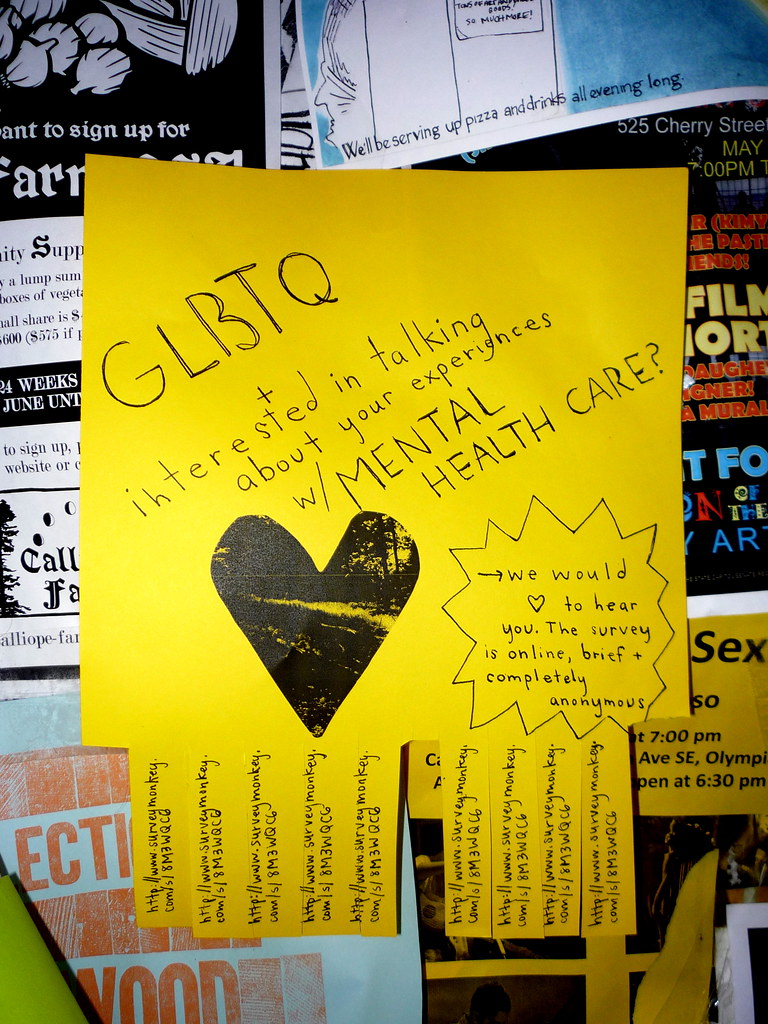 TONS OF ART AND
GOODS!
SO MUCH MORE!
We'll be serving up pizza and drinks all evening long.
ant to sign up for
Farm
nity Supp
y a lump sum
boxes of vegeta
all share is $
600 ($575 if p
24 WEEKS
JUNE UNT
to sign up,
website or c
Call
Fa
alliope-far
525 Cherry Street
MAY
7:00PM T
R (KIMY
HE PASTI
IENDS!
FILM
HORT
DAUGHE
IGNER!
A MURAL
T FO
ON OF THE
Y ART
GLBTQ
+
interested in talking
about your experiences
w/ MENTAL
HEALTH CARE?
→we would
♡ to hear
you. The survey
is online, brief +
completely
anonymous
http://www.surveymonkey.
com/s/8M3WQC6
http://www.surveymonkey.
com/s/8M3WQC6
http://www.surveymonkey.
com/s/8M3WQC6
http://www.surveymonkey.
com/s/8M3WQC6
http://www.surveymonkey.
com/s/8M3WQC6
http://www.surveymonkey.
com/s/8M3WQC6
http://www.surveymonkey.
com/s/8M3WQC6
http://www.surveymonkey.
com/s/8M3WQC6
http://www.surveymonkey.
com/s/8M3WQC6
Sex
so
t 7:00 pm
Ave SE, Olympi
pen at 6:30 pm
Ca
A
ECTI
WOOD